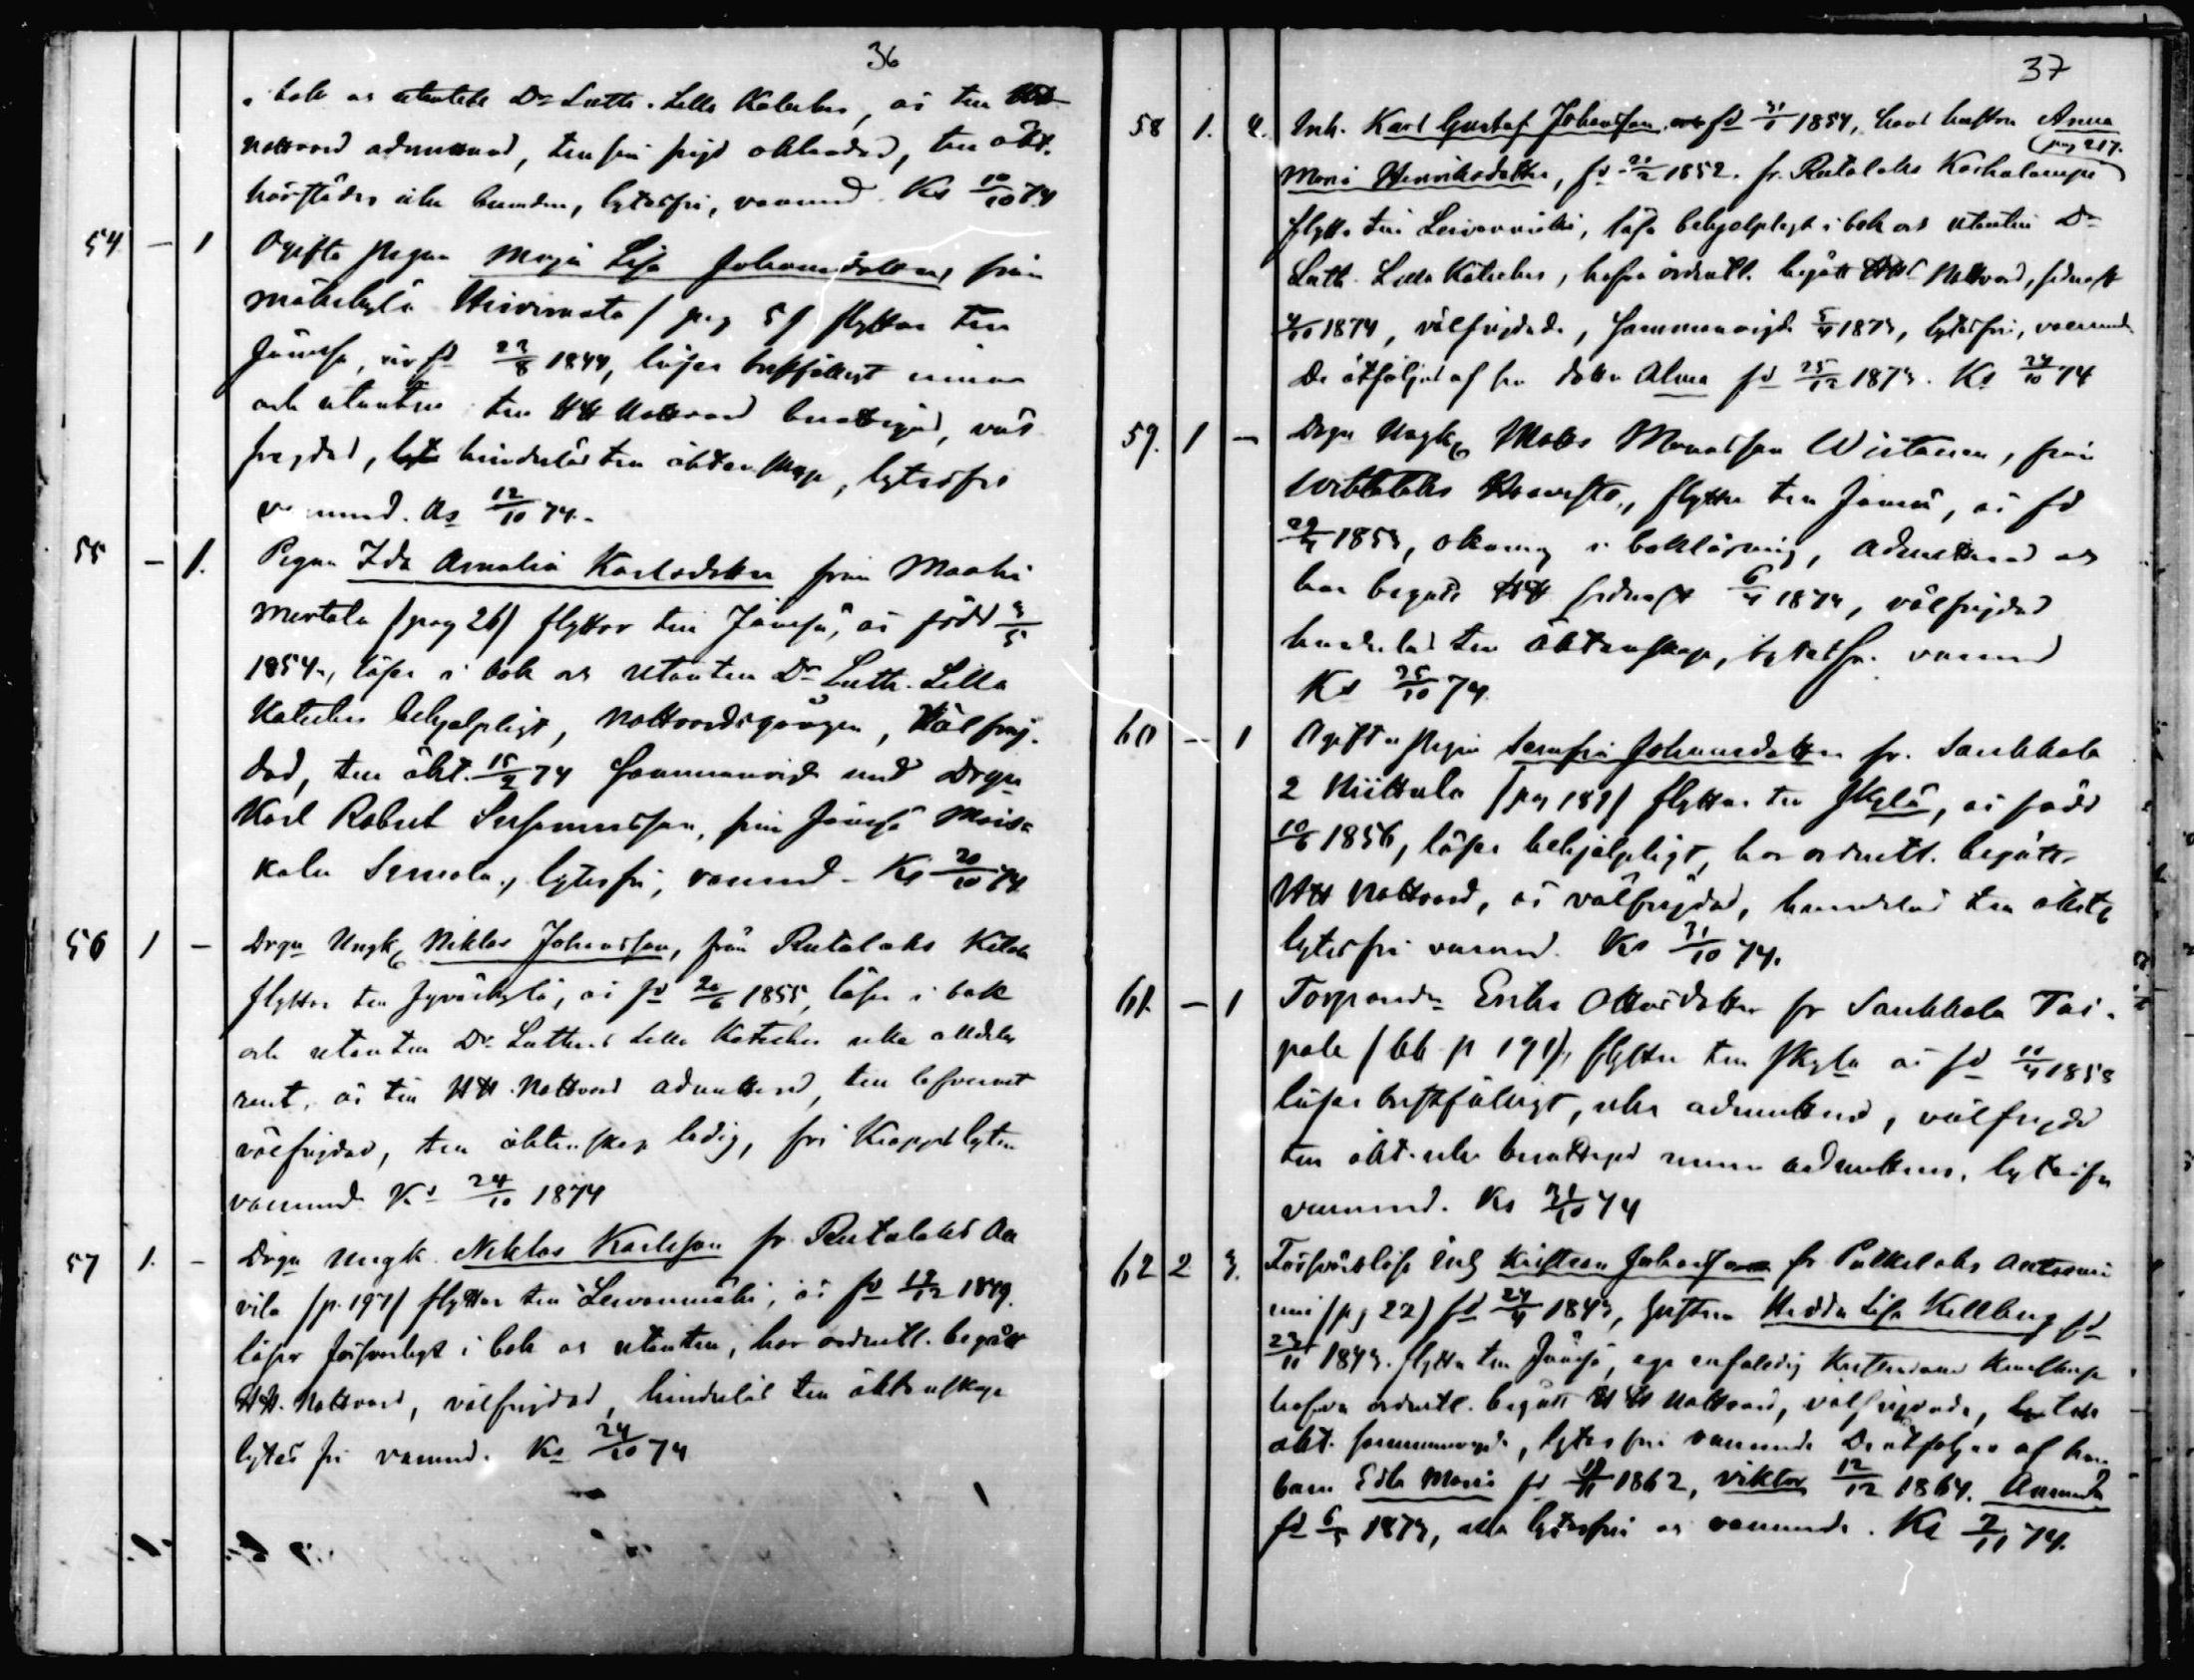 36
i bok och utantill Drs Luth. Lilla Katekes, är till
Nattvard admitterad, till sin frejd oklandrad, till äkt.
härstädes icke bunden, lytesfri, vaccinerad. Ks 10/10 74
54 — 1 Ogifta pigan Maja Lisa Johansdotter, från
Mäkikylä Hirvimata (pag 5) flyttar till
Jämsä, är fd 23/8 1844, läser bristfälligt innan
och utantill, till HH Nattvard berättigad, väl-
frejdad, hinderslös till äktenskap, lytesfri
vaccinerad. As 12/10 74.
55 — 1. Pigan Ida Amalia Karlsdotter från Maahi
Mertala (pag 26) flyttar till Jämsä, är född 3/5
1854, läser i bok och utantill Drs Luth. Lilla
Katekes behjelpligt, Nattvardsgången, Välfrej-
dad, till äkt. 15/2 74 sammanvigd med Drgn
Karl Robert , från Jämsä
kala Simola, lytesfri, vaccinerad. Ks 20/10 74
56 1 — Drgn Ungk. Niklas Johansson, från Rutalaks Ketola
flyttar till Jyväskylä, är fd 20/6 1855, läser i bok
och utantill Drs Luthers Lilla Katekes icke alldeles
rent, är till HH. Nattvard admitterad, till lefvernet
välfrejdad, till äktenskap ledig, fri kroppslyten
vaccinerad Ks 24/10 1874
57 1. — Drgn ungk. Niklas Karlsson fr. Rutalaks Aa
vila (p. 197) flyttar till Leivonmäki, är fd 12/12 1849.
läser försvarligt i bok och utantill, har ordentl. begått
HH. Nattvard, välfrejdad, hinderslös till äktenskap
lytes fri vaccinerad. Ks 24/10 74
37
58 1. 2. Inh. Karl Gustaf Johansson fd 31/1 1854, hustru Anna
pag 217.
Maria Henriksdotter, fd 21/2 1852. fr. Rutalaks Koskelampi
flytta till Leivonmäki, läsa behjelpligt i bok och utantill Drs
Luth. Lilla Katekes, hafva ordentl. begått HH Nattvard, sednast
4/10 1874, välfrejdade, sammanvigde 5/4 1873, lytesfri, vaccinerade
De åtföljas af sin dotter Alma fd 25/12 1873. Ks 24/10 74
59. 1 — Drgn Ungk. Mats Wirtanen, från
flyttar till Jämsä, är fd
29/4 1853, i bokläsning, admitterad och
har begått HH sednast 6/4 1874, välfrejdad
hinderslös till Äktenskap, lytesfri vaccinerad
Ks 25/10 74.
60 — 1 Ogifta pigan Serafia Johansdotter fr. Sarkkola
2 Niittula (pag 189) flyttar till Jkylä, är född
10/6 1856, läser behjelpligt, har ordentl. begått
HH Nattvard, är välfrejdad, hinderslös till äktsk.
lytesfri vaccinerad. Ks 31/10 74.
61. — 1 Torparedr Erika Ottosdotter fr Sarkkola Tai-
pale (bb p 191), flyttar till Jkylä är fd 11/4 1858
läser bristfälligt, icke admitterad, välfrejdad
till äkt. icke berättigad innan admitteras, lytesfri
vaccinerad. Ks 31/10 74
62 2 3. Försvarslöse Inh. Kristian Johansson fr Pulkilaks
(pag 22) fd 24/4 1843, Hustrun Hedda Lisa Kellberg fd
23/11 1843. flytta till Jämsä, ega enfaldig Kristendoms Kunskap
hafva ordentl. begått HH Nattvard, välfrejdade, till
äkt. sammanvigde, lytesfri vaccinerade De åtföljas af sina
barn Edla Maria fd 1862, Viktor 12/12 1864. Amanda
fd 6/5 1873, alla lytesfri och vaccinerade. Ks 2/11 74.